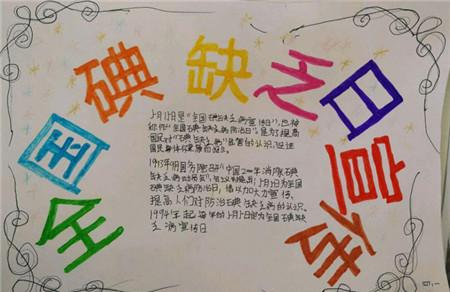 全国碘缺乏日宣传
5月15日是"全国碘缺乏病宣传日",也被
称作"全国碘缺乏病防治日",是为了提高
国民对"碘缺乏病"危害的认识,促进
国民身体健康的设立。
1993年9月国务院召开"中国2000年消除碘
缺乏病动员会"会议提出:5月5日为全国
碘缺乏病防治日,借以加大力宣传、
提高人们对防治碘缺乏病的认识。
1994年起每年的5月5日定为全国碘缺
乏病宣传日
四.一